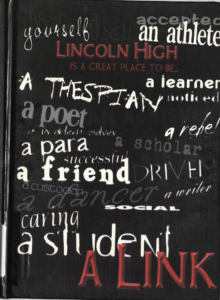 accepted
yourself an athlete
LINCOLN HIGH
IS A GREAT PLACE TO BE...
a learner
A THESPIAN noticed
a poet
a rebel
a para a scholar
successful
a friend DRIVEN
a custodian a writer
a dancer
SOCIAL
caring
a student
A LINK